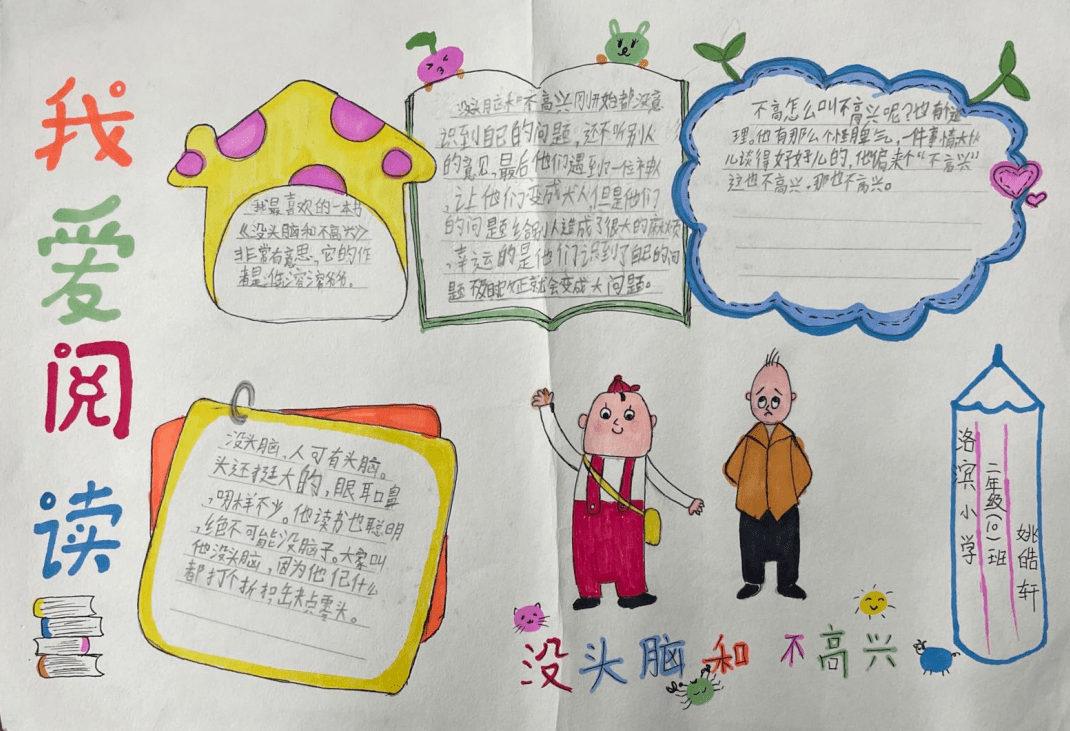 我爱阅读
我最喜欢的一本书
《没头脑和不高兴》
非常有意思，它的作
者是任溶溶爷爷。
没头脑和不高兴刚开始都没意
识到自己的问题，还不听别人
的意见，最后他们遇到了一位神仙
，让他们变成大人，但是他们
的问题给别人造成了很大的麻烦
，幸运的是他们认识到了自己的问
题 不及时改正就会变成大问题。
不高怎么叫不高兴呢？也有道
理。他有那么个怪脾气，一件事情大伙
儿谈得好好儿的，他偏来个“不高兴”
这也不高兴，那也不高兴。
没头脑，人可有头脑。
头还挺大的，眼耳口鼻
，哪样不少。他读书也聪明
，绝不可能没脑子。大家叫
他没头脑，因为他记什么
都打个折扣，丢点零头。
没头脑和不高兴
洛滨小学
二年级(10)班
姚皓轩